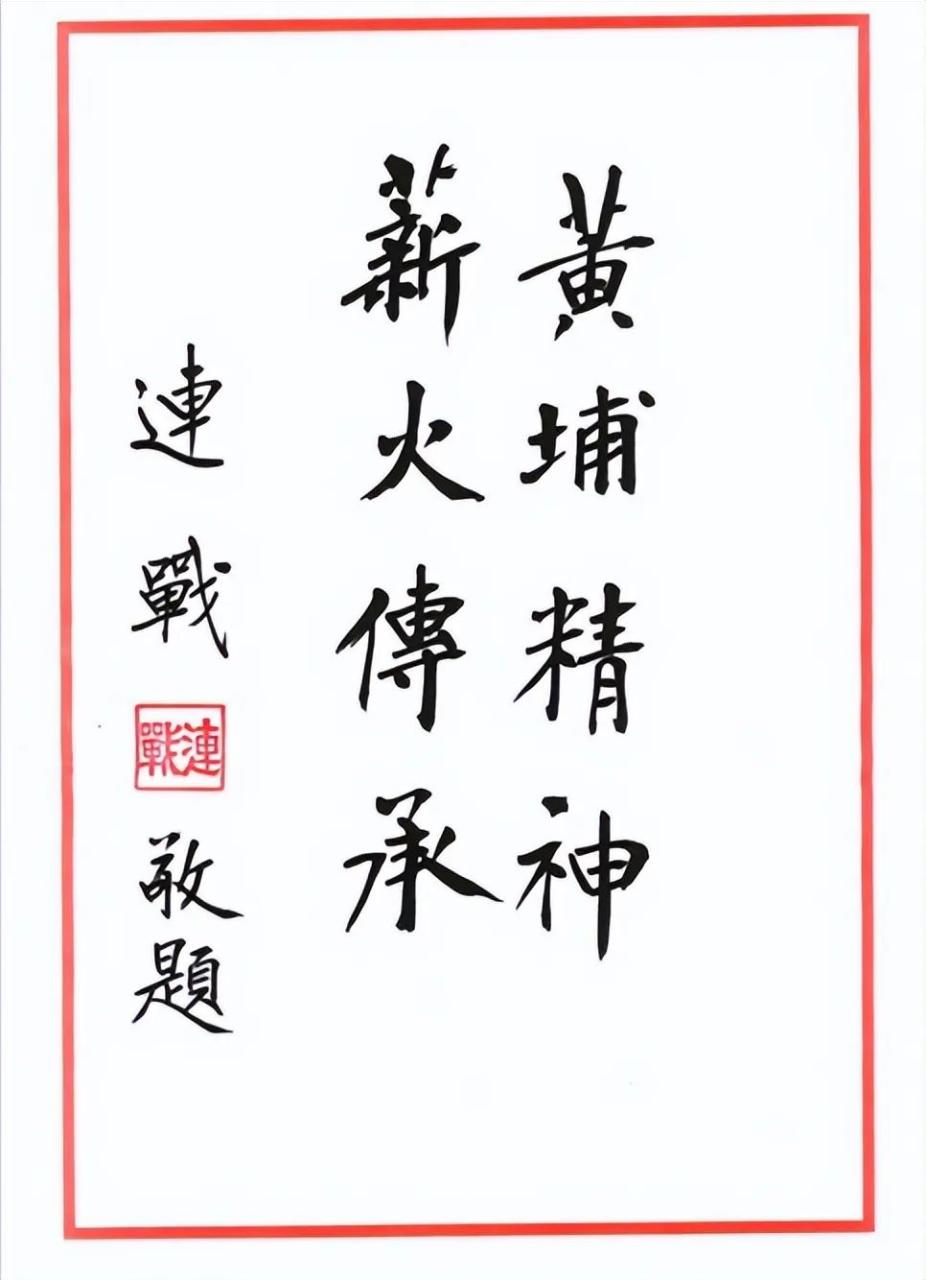 黃埔精神
薪火傳承
連戰
連戰
敬題